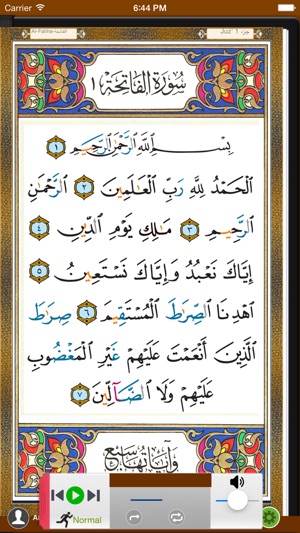 Carrier 6:44 PM
Al-Fatiha-الفاتحة Juz' 1 جزء
سُورَةُ الْفَاتِحَةِ ١
بِسْمِ ٱللَّهِ ٱلرَّحْمَٰنِ ٱلرَّحِيمِ ١
ٱلْحَمْدُ لِلَّهِ رَبِّ ٱلْعَٰلَمِينَ ٢ ٱلرَّحْمَٰنِ
ٱلرَّحِيمِ ٣ مَٰلِكِ يَوْمِ ٱلدِّينِ ٤
إِيَّاكَ نَعْبُدُ وَإِيَّاكَ نَسْتَعِينُ ٥
ٱهْدِنَا ٱلصِّرَٰطَ ٱلْمُسْتَقِيمَ ٦ صِرَٰطَ
ٱلَّذِينَ أَنْعَمْتَ عَلَيْهِمْ غَيْرِ ٱلْمَغْضُوبِ
عَلَيْهِمْ وَلَا ٱلضَّآلِّينَ ٧
وَآيَاتُهَا سَبْعٌ
Normal